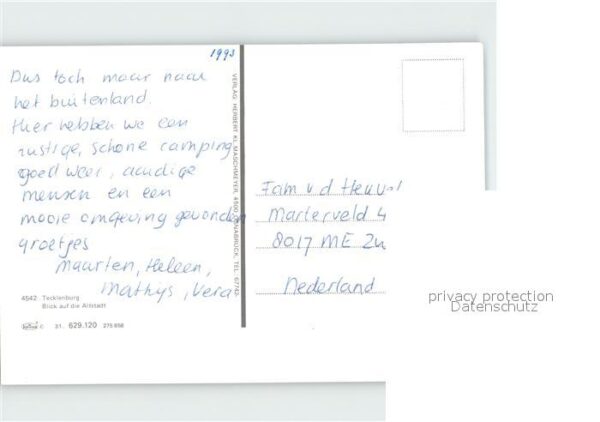 1993
Dus toch maar naar
het buitenland.
Hier hebben we een
rustige, schone camping,
goed weer, aardige
mensen en een
mooie omgeving gevonden
groetjes
Maarten, Heleen,
Mathijs, Vera
4542 Tecklenburg
Blick auf die Altstadt
C 31. 629.120 275 858
VERLAG HERBERT KL. MASCHMEYER, 4500 OSNABRÜCK, TEL.
Fam v d Heuvel
Marterveld 4
8017 ME Zw
Nederland
privacy protection
Datenschutz